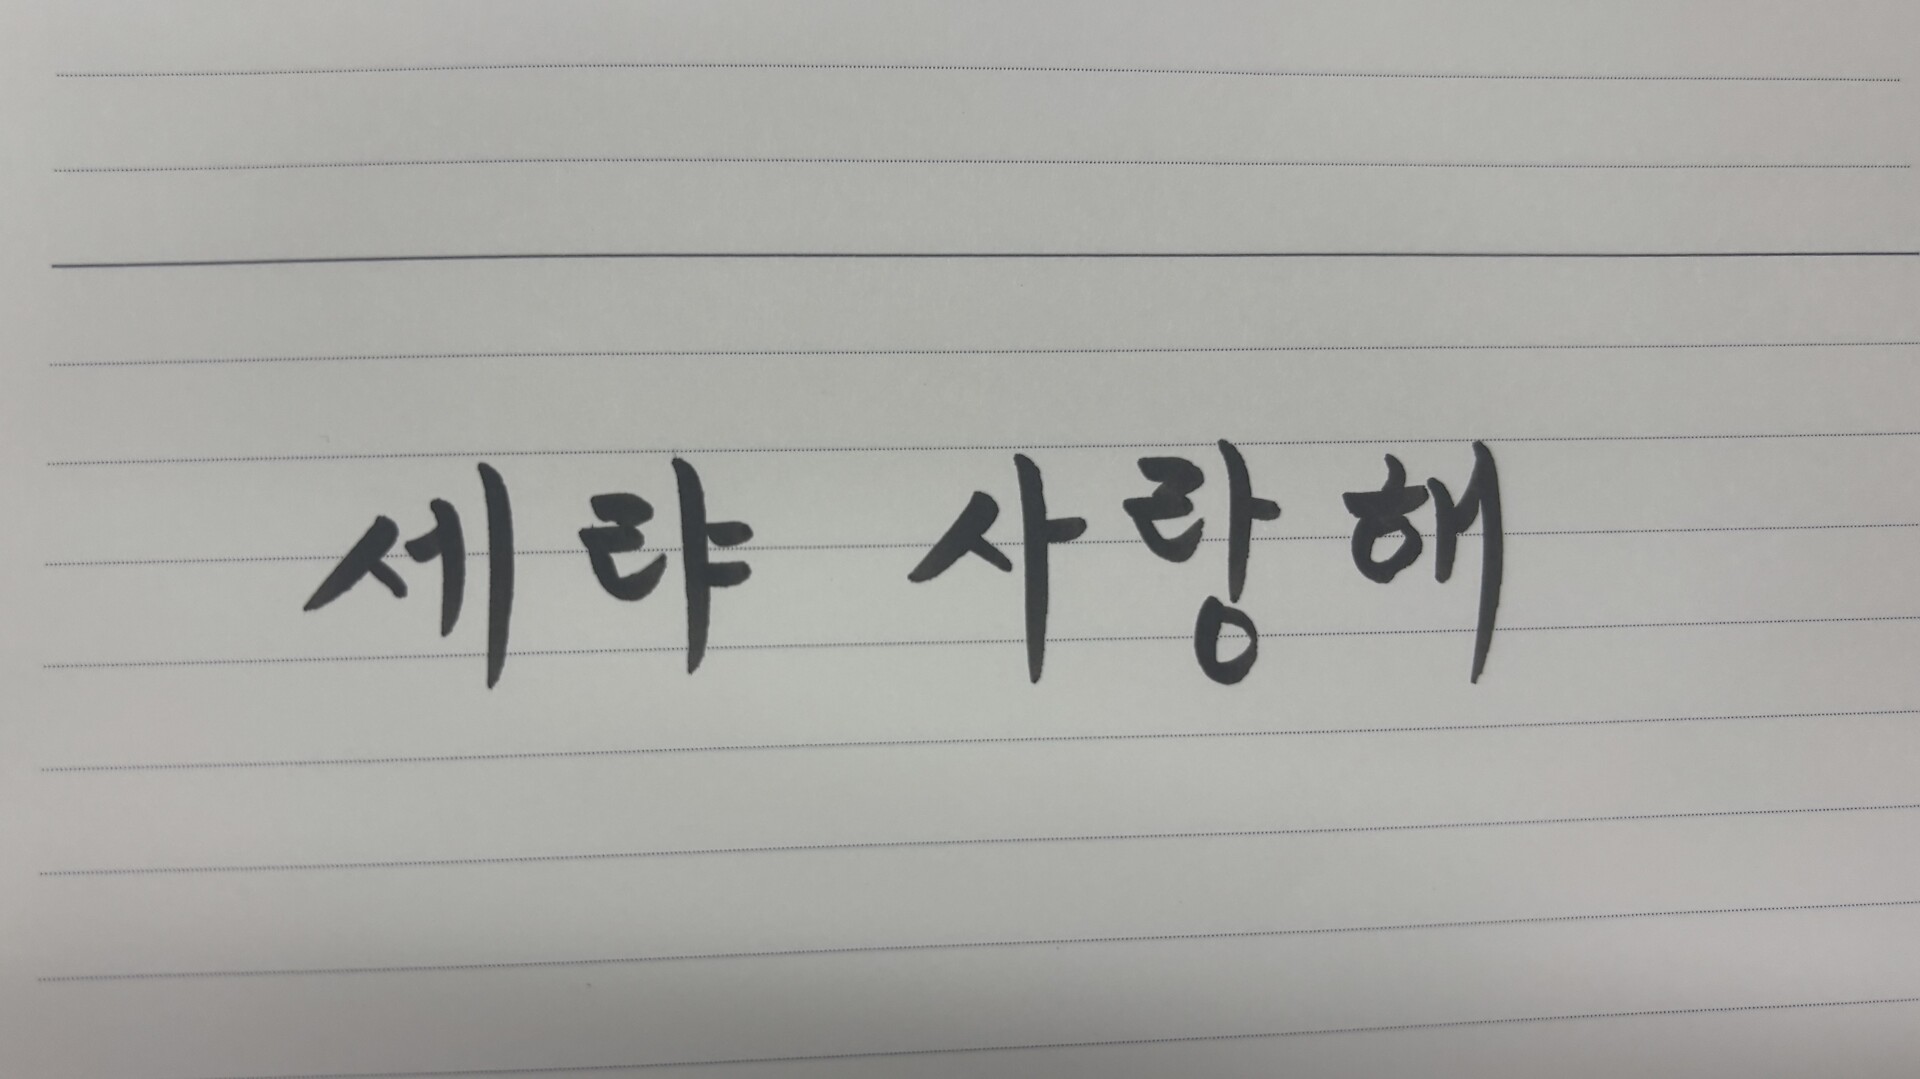 세랴 사랑해